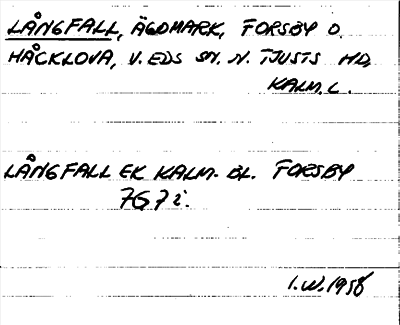 LÅNGFALL, ÄGOMARK, FORSBY O.
HÅCKLOVA, V. EDS SN. N. TJUSTS HD,
KALM. L.
LÅNGFALL EK KALM. BL. FORSBY
7G7i.
I.W. 1958